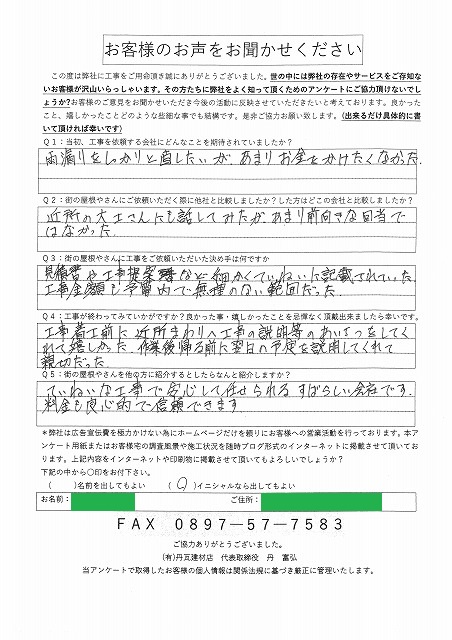 お客様のお声をお聞かせください
この度は弊社に工事をご用命頂き誠にありがとうございました。世の中には弊社の存在やサービスをご存知な
いお客様が沢山いらっしゃいます。その方たちに弊社をよく知って頂くためのアンケートにご協力頂けないでし
ょうか?お客様のご意見をお聞かせいただき今後の活動に反映させていただきたいと考えております。良かったこ
と、嬉しかったことどのような些細な事でも結構です。是非ご協力お願い致します。(出来るだけ具体的に書
いて頂ければ幸いです)
Q1:当初、工事を依頼する会社にどんなことを期待されていましたか?
雨漏りをしっかりと直したいが、あまりお金をかけたくなかった.
Q2:街の屋根やさんにご依頼いただく際に他社と比較しましたか?した方はどこの会社と比較しましたか?
近所の大工さんにも話してみたが、あまり前向きな回答で
はなかった.
Q3:街の屋根やさんに工事をご依頼いただいた決め手は何ですか
見積書や工事提案書など細かくていねいに記載されていた.
工事金額も予算内で無理のない範囲だった.
Q4:工事が終わってみていかがですか?良かった事・嬉しかったことを忌憚なく頂戴出来ましたら幸いです。
工事着工前に近所まわりへ工事の説明等のあいさつをしてく
れて嬉しかった. 作業後帰る前に翌日の予定を説明してくれて
親切だった.
Q5:街の屋根やさんを他の方に紹介するとしたらなんと紹介しますか?
ていねいな工事で安心して任せられるすばらしい会社です.
料金も良心的で信頼できます
*弊社は広告宣伝費を極力かけない為にホームページだけを頼りにお客様への営業活動を行っております。本ア
ンケート用紙またはお客様宅の調査風景や施工状況を随時ブログ形式のインターネットに掲載させて頂いてお
ります。上記内容をインターネットや印刷物に掲載させて頂いてもよろしいでしょうか?
下記の中から〇印をお付下さい。
( )名前を出してもよい (〇)イニシャルなら出してもよい
お名前: ご住所:
FAX 0897-57-7583
ご協力ありがとうございました。
(有)丹瓦建材店 代表取締役 丹 富弘
当アンケートで取得したお客様の個人情報は関係法規に基づき厳正に管理いたします。